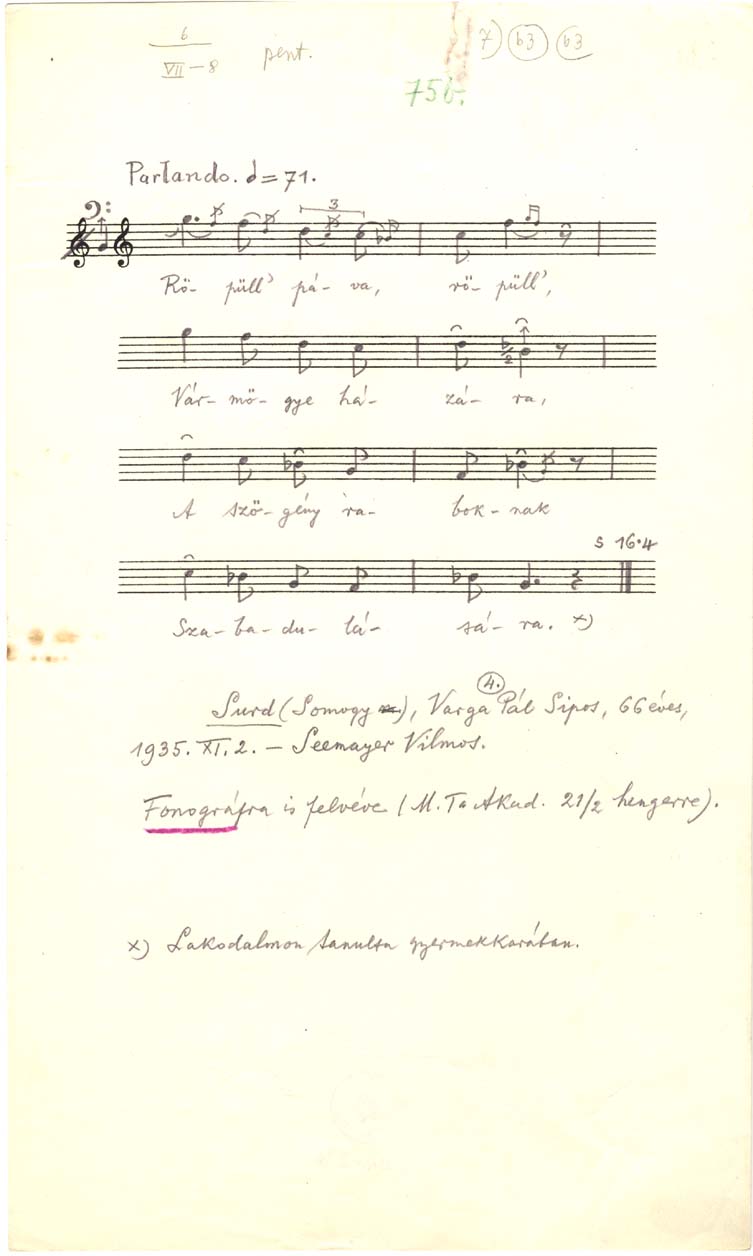 6
VII - 8 pent. 7) b3 b3
756.
Partando. = 71.
3
Rö- püll' pá- va, rö- püll',
Vár- mö- gye há- zá- ra,
2
A szö- gény ra- bok- nak
s 16·4
Sza- ba- du- lá- sá- ra. x)
4.
Surd (Somogy), Varga Pál Sipos, 66 éves,
1935. XI. 2. — Seemayer Vilmos.
Fonográfra is felvéve (M. T. Akad. 21/2 hengerre).
x) Lakodalmon tanulta gyermekkorában.